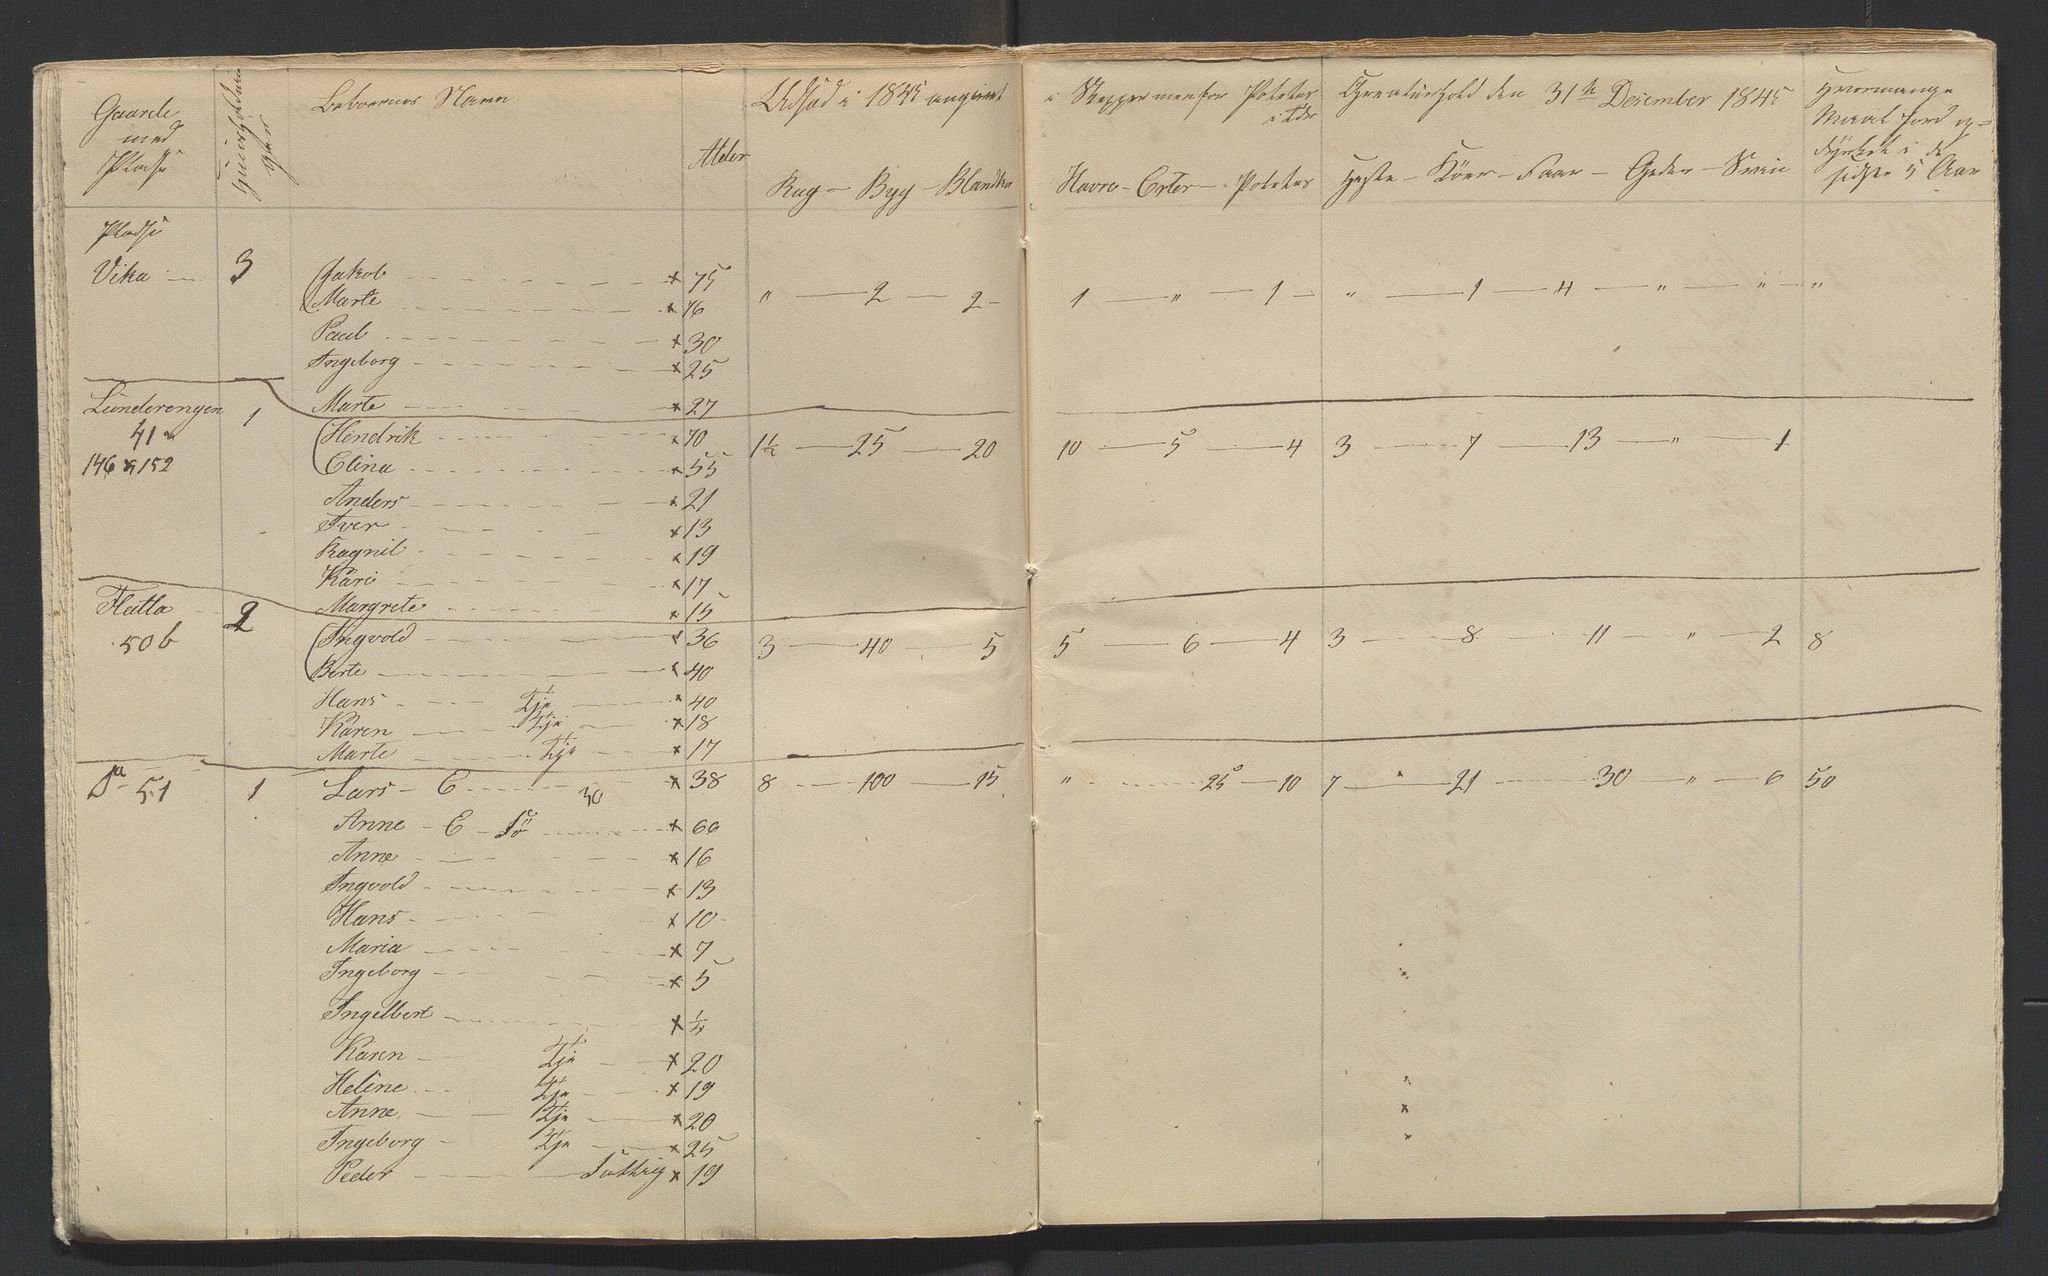 Gaarde med Pladse Beboernes Navn Alder Udsæd i 1845 angivet i Skjepper men for Poteter i Tdr Creaturhold den 31te Desember 1845 Hvormange Maal Jord op=
dyrket i de sidste 5 Aar
Rug - Byg - Blandkn Havre - Erter - Poteter Heste - Köer - Faar - Geder - Sviin
Pladse
Vika 3 Jakob x 75 " 2 2 1 " 1 " 1 4 " " "
Marte x 76
Paul x 30
Ingeborg x 25
Marte x 27
Lunderengen 1 Hendrik x 70 1½ 25 20 10 5 4 3 7 13 " 1
41 a
146 & 152 Elina x 55
Anders x 21
Iver x 13
Ragnil x 19
Kari x 17
Margrete x 15
Flatla 2 Ingvold x 36 3 40 5 5 6 4 3 8 11 " 2 8
50 b Berte x 40
Hans Tje x 40
Karen Tje x 18
Marte Tje x 17
Do 51 1 Lars - E x 38 8 100 15 " 25 10 7 21 30 " 6 50
30
Anne - E - x 66
Anne x 16
Ingvold x 13
Hans x 10
Maria x 7
Ingeborg x 5
Ingelbert x ¼
Karen Tje x 20
Heline Tje x 19
Anne Tje x 20
Ingeborg Tje x 25
Peder Fattig x 19